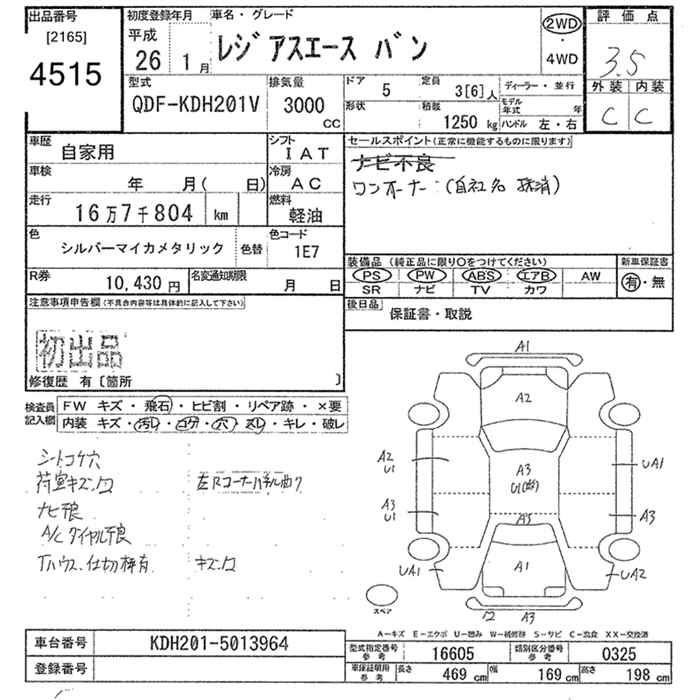 出品番号
[2165]
4515
初度登録年月
平成
26 1月
車名・グレード
レジアスエース バン
2WD
・
4WD
評価点
3.5
外装 内装
C C
型式
QDF-KDH201V
排気量
3000
CC
ドア
5
定員
3[6]人
形状
積載
1250 kg
ディーラー・並行
モデル年式 年
ハンドル 左・右
車歴
自家用
シフト
IAT
車検
年 月( 日)
冷房
AC
走行
16万7千804 km
燃料
軽油
色
シルバーマイカメタリック
色替
色コード
1E7
R券
10,430円
名変通知期限
月 日
セールスポイント(正常に機能するものに限ります)
ナビ不良
ワンオーナー:(自社名 抹消)
装備品(純正品に限り○をつけてください)
PS PW ABS エアB AW
SR ナビ TV カワ
新車保証書
有・無
後日品
保証書・取説
注意事項申告欄(不具合内容等は具体的に記入して下さい)
初出品
修復歴 有〔箇所 〕
検査員記入欄
FW キズ・飛石・ヒビ割・リペア跡・×要
内装 キズ・汚レ・コゲ・穴・スレ・キレ・破レ
シートコゲ穴
荷室キズ、凹
左Rコーナーパネル曲り
ナビ不良
A/Cダイヤル不良
Tハウス、仕切棒有
キズ、凹
A1
A2
A2
U1
A3
UA1
A3
U1
A3
A3
UA1
A1
UA2
A3
スペア
A―キズ E―エクボ U―凹み W―補修跡 S―サビ C―腐食 XX―交換済
車台番号
KDH201-5013964
登録番号
型式指定番号
参考
16605
類別区分番号
参考
0325
車保証明用
参考
長さ
469 cm
幅
169 cm
高さ
198 cm